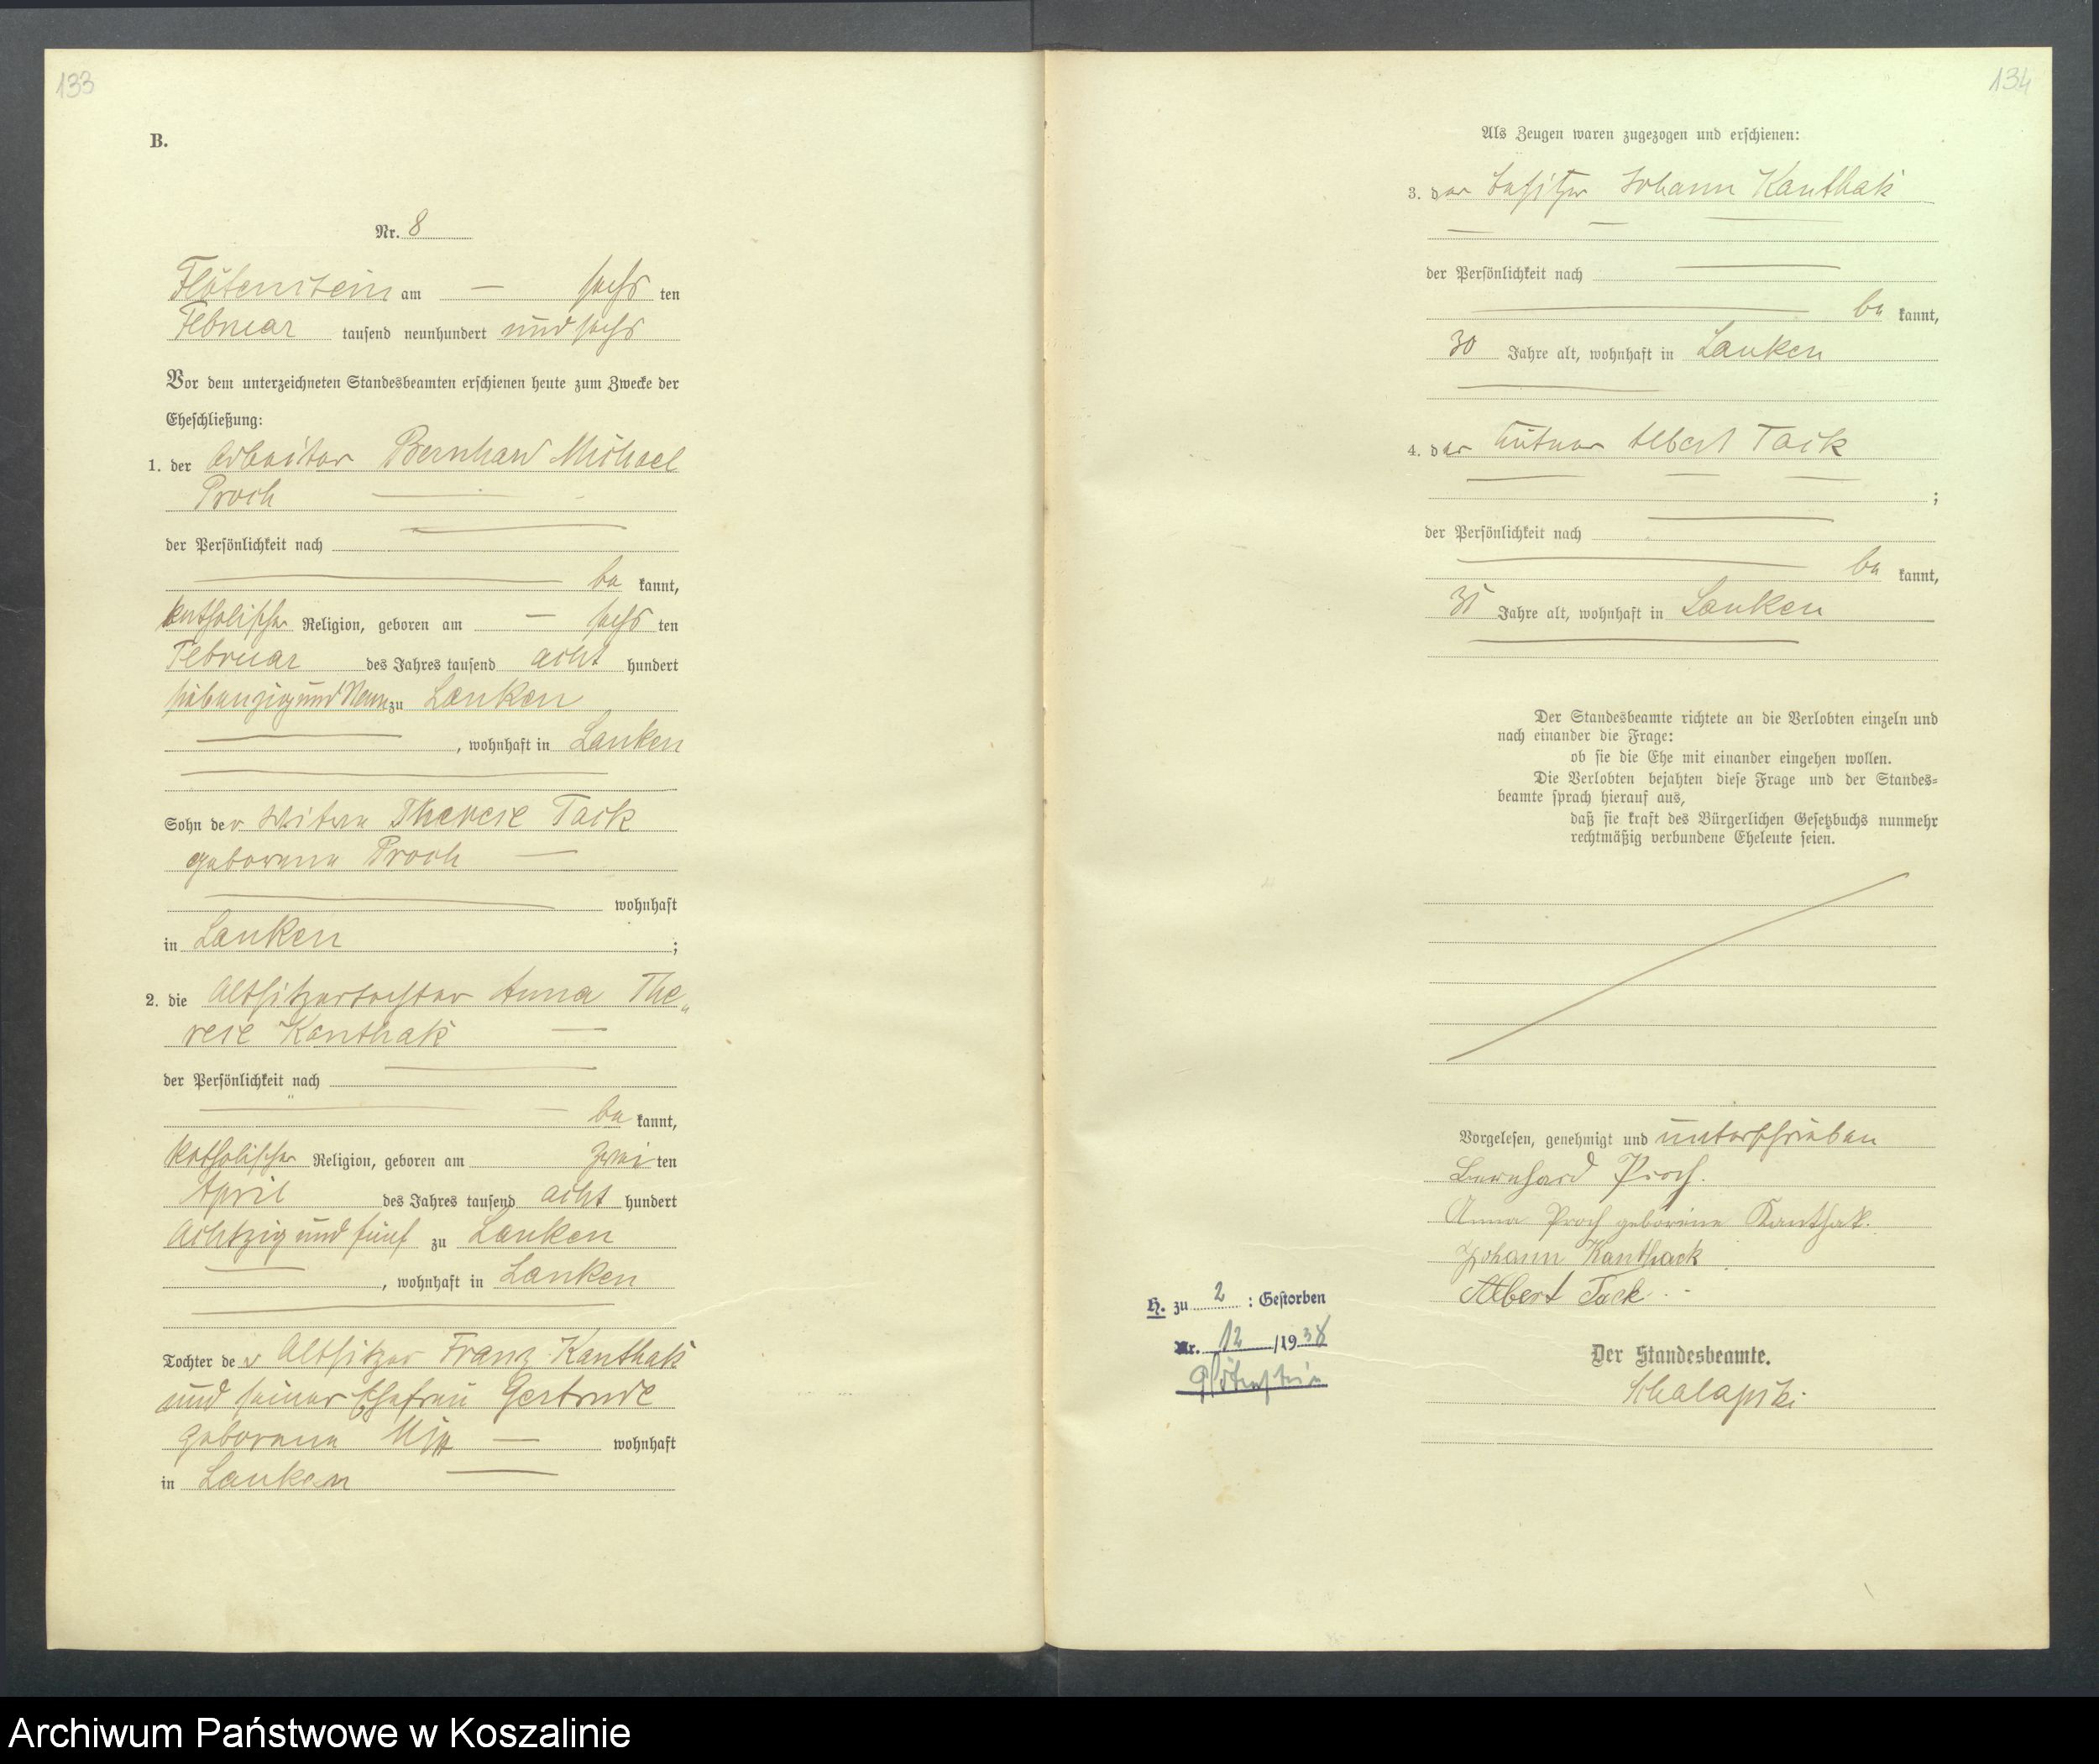 133
B.
Nr. 8
Flötenstein am — sechs ten
Februar tausend neunhundert und sechs
Vor dem unterzeichneten Standesbeamten erschienen heute zum Zwecke der
Eheschließung:
1. der Arbeiter Bernhard Michael
Proch
der Persönlichkeit nach
be kannt,
katholischer Religion, geboren am — sechs ten
Februar des Jahres tausend acht hundert
siebenzig und Neun zu Lanken
, wohnhaft in Lanken
Sohn der Therese Tack
geborene Proch —
wohnhaft
in Lanken ;
2. die Altsitzertochter Anna The„
rese Kanthak —
der Persönlichkeit nach
be kannt,
katholischer Religion, geboren am zwei ten
April des Jahres tausend acht hundert
Achtzig und fünf zu Lanken
, wohnhaft in Lanken
Tochter des Altsitzer Franz Kanthak
und seiner Ehefrau Gertrude
geborene —
wohnhaft
in Lanken
134
Als Zeugen waren zugezogen und erschienen:
3. der Besitzer Johann Kanthak
der Persönlichkeit nach
be kannt,
30 Jahre alt, wohnhaft in Lanken
4. der Albert Tack
;
der Persönlichkeit nach
be kannt,
Jahre alt, wohnhaft in Lanken
Der Standesbeamte richtete an die Verlobten einzeln und
nach einander die Frage:
ob sie die Ehe mit einander eingehen wollen.
Die Verlobten bejahten diese Frage und der Standes=
beamte sprach hierauf aus,
daß sie kraft des Bürgerlichen Gesetzbuchs nunmehr
rechtmäßig verbundene Eheleute seien.
Vorgelesen, genehmigt und unterschrieben
Bernhard Proch.
Anna Proch geborene Kanthak.
Johann Kanthack
Albert Tack
H. zu 2 : Gestorben
Nr. 12 /1938
Flötenstein
Der Standesbeamte.
Schalapski
Archiwum Państwowe w Koszalinie